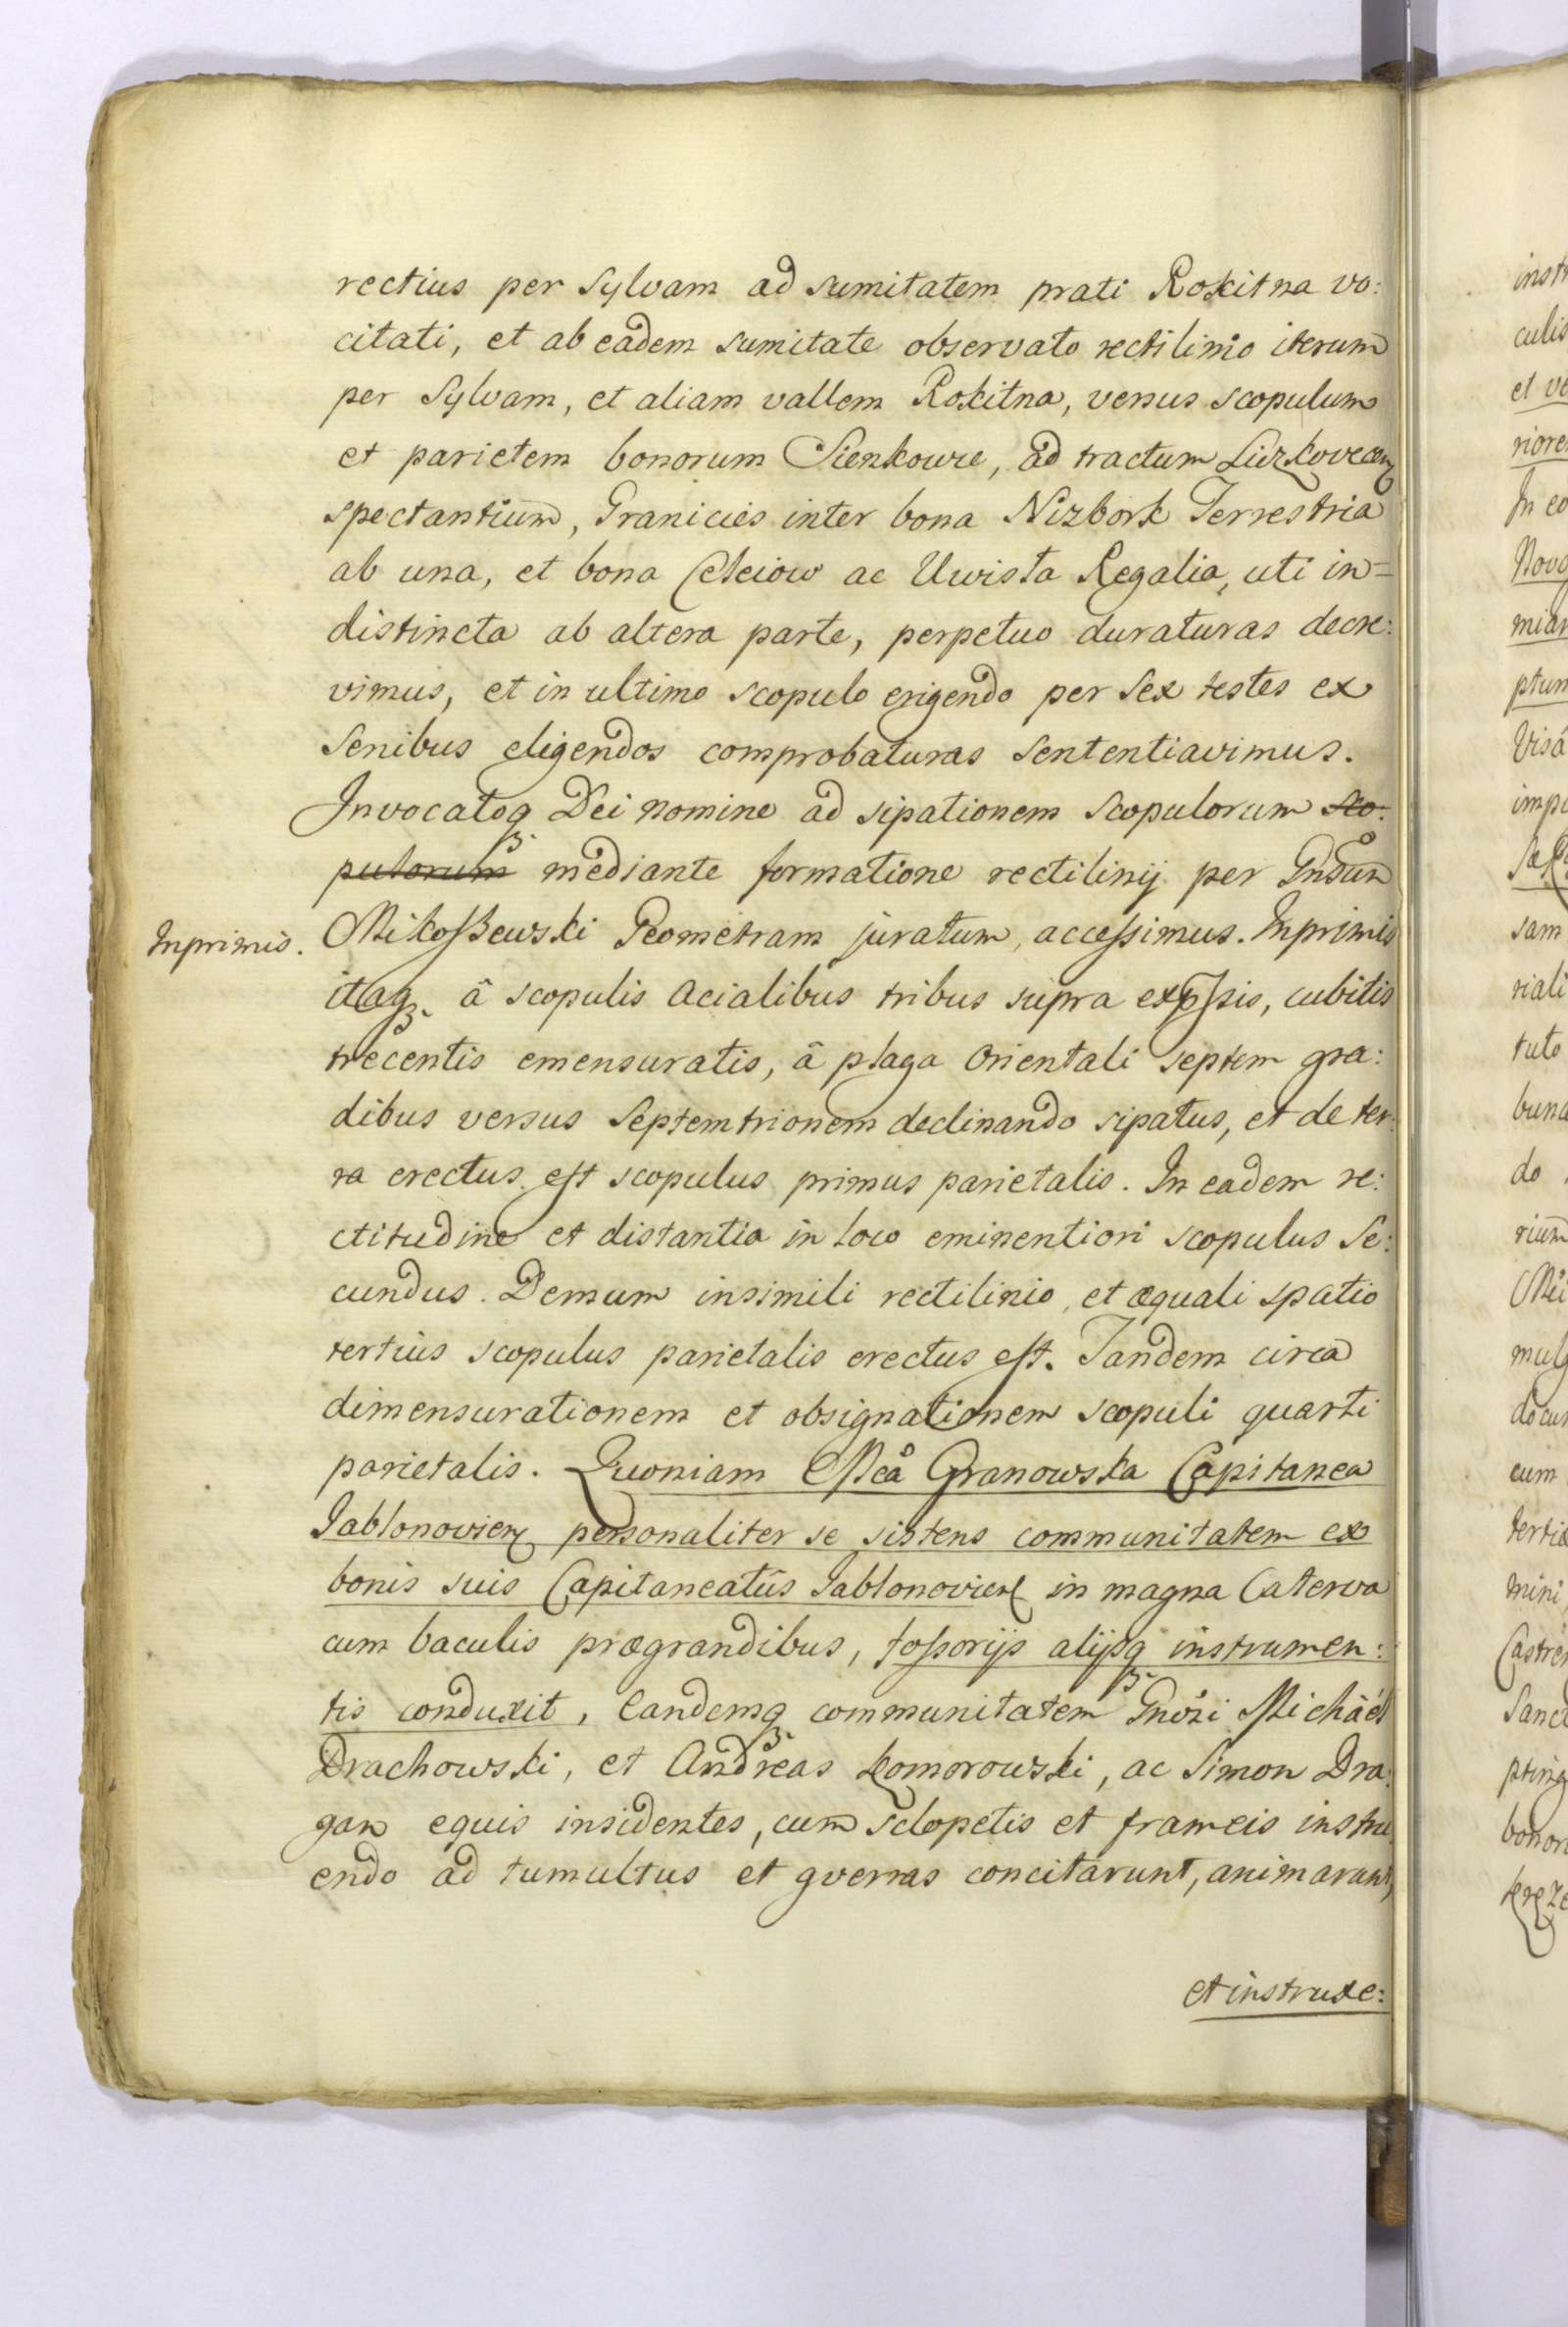 rectius per Sylvam ad sumitatem prati Rokitna vo:
citati, et ab eadem sumitate observato rectilinio iterum
per Sylvam, et aliam vallem Rokitna, versus scopulum
et parietem bonorum Sienkowce, ad tractum
spectantium, Granicies inter bona Nizbork Terrestria
ab una, et bona Celeiow ac Uwisla Regalia, uti in=
distincta ab altera parte, perpetuo duraturas decre:
vimus, et in ultimo scopulo erigendo per Sex testes ex
Senibus eligendos comprobaturas Sententiavimus.
Invocatoq Dei nomine ad sipationem Scopulorum sco:
pulorum mediante formatione rectilinij per Gnsum
Inprimis.
Mikoszewski Geometram juratum, accessimus. Inprimis
itaq. â scopulis acialibus tribus supra expssis, cubitis
trecentis emensuratis, â plaga Orientali septem gra:
dibus versus Septemtrionem declinando sipatus, et de ter:
ra erectus est scopulus primus parietalis. In eadem re:
ctitudine et distantia in loco eminentiori scopulus Se:
cundus. Demum insimili rectilinio, et æquali spatio
tertius scopulus parietalis erectus est. Tandem circa
dimensurationem et obsignationem scopuli quarti
parietalis. Quoniam Mca Granowska Capitanea
Jablonovien personaliter se sistens communitatem ex
bonis suis Capitaneatûs Jablonovien in magna Caterva
cum baculis prægrandibus, fossorijs alijsq instrumen:
tis conduxit, Eandemq communitatem Gnosi Michaël
Drachowski, et Andreas Komorowski, ac Simon Dra:
gan equis insidentes, cum sclopetis et frameis instru:
endo ad tumultus et gverras concitârunt, animarunt,
et instruxe:
instr
culis
et ve
riore
In eo
Novo
miar
ptum
Visâ
impo
sam
riali
tuto
bund
do
rium
mulq
docum
cum
tertia
mini
Castren
Sanct
pting
bonor